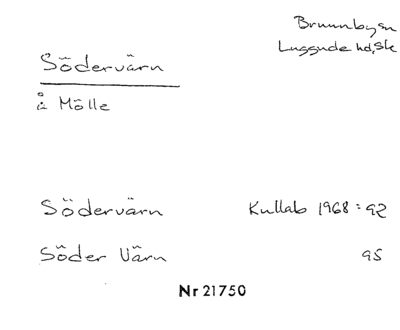 Brunnbysn
Luggude hd, Sk
Södervärn
å Mölle
Södervärn Kullab 1968:92
Söder Värn 95
Nr 21750